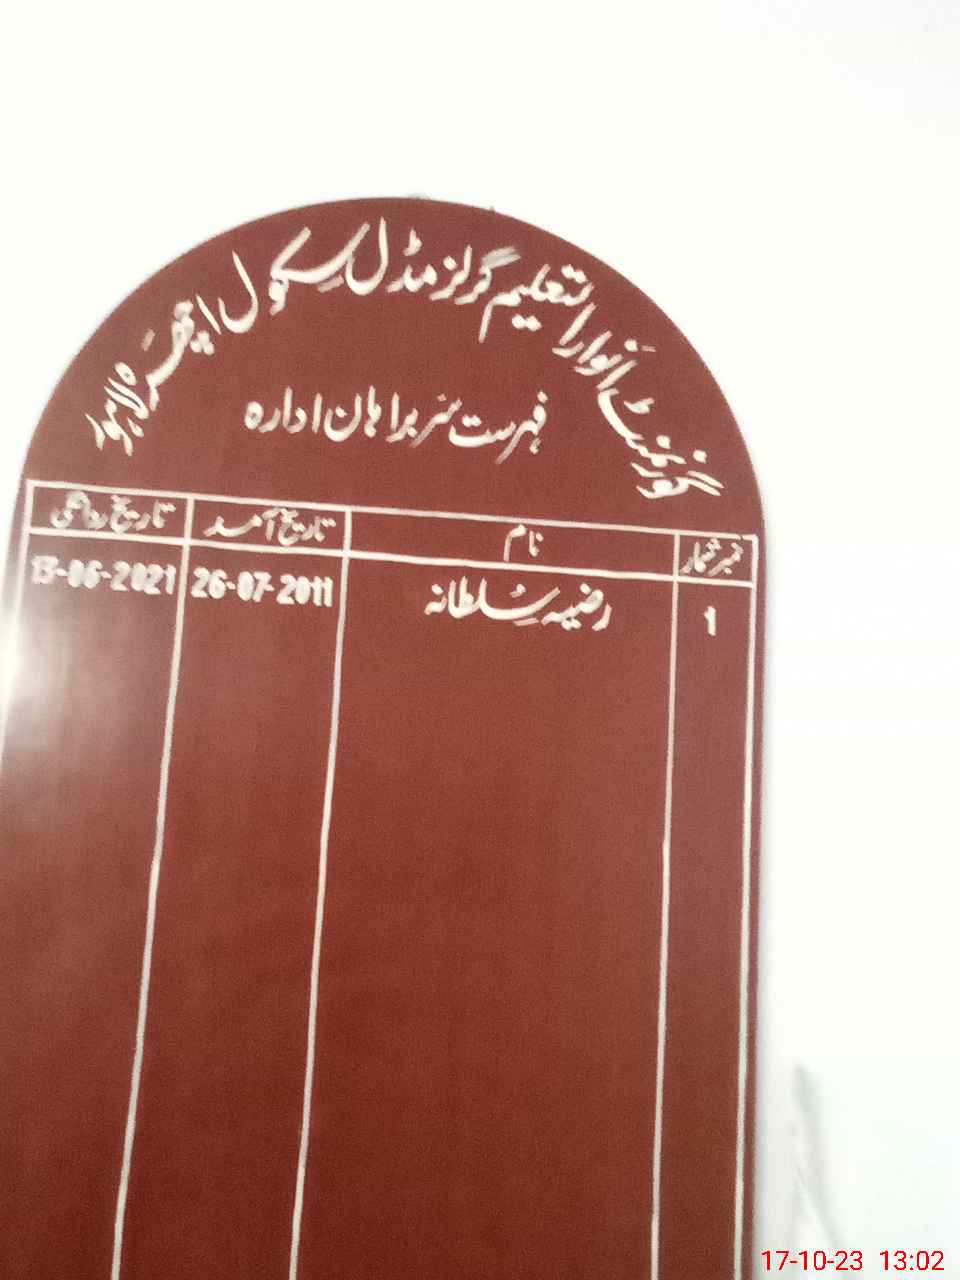 گورنمنٹ انوار التعلیم گرلز مڈل سکول اچھرہ لاہور
فہرست سربراہان ادارہ
نمبر شمار نام تاریخ آمد تاریخ روانگی
1 رضیہ سلطانہ 26-07-2011 13-06-2021
17-10-23 13:02